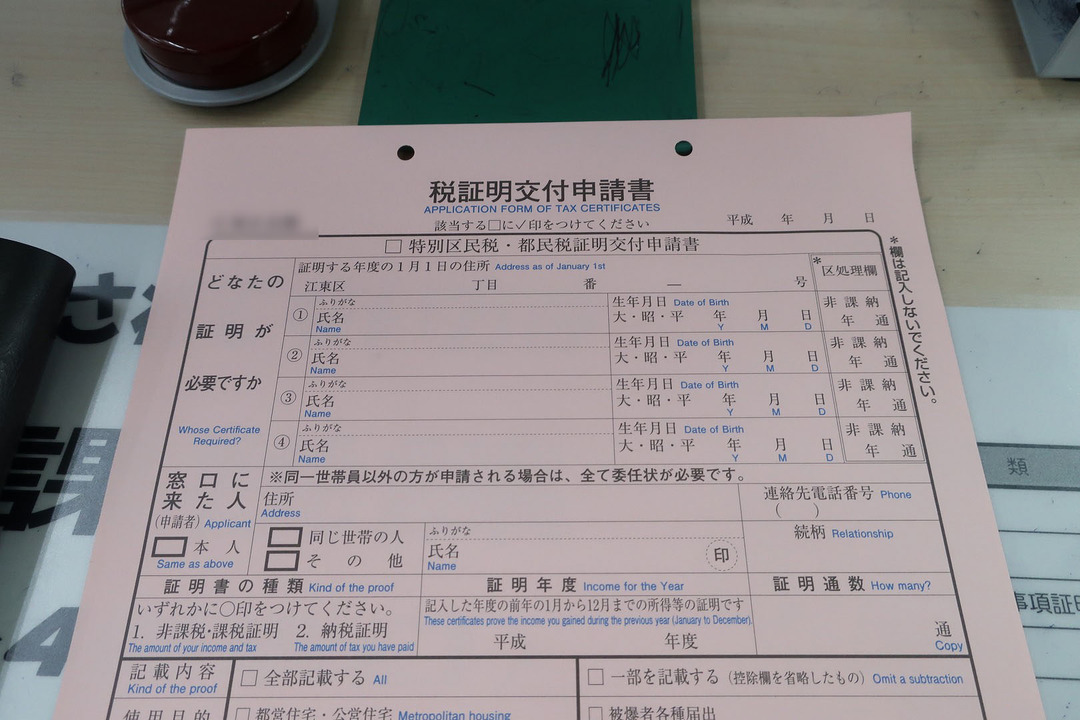 税証明交付申請書
APPLICATION FORM OF TAX CERTIFICATES
該当する□に✓印をつけてください
平成 年 月 日
□ 特別区民税・都民税証明交付申請書
*欄は記入しないでください。
どなたの
証明が
必要ですか
Whose Certificate
Required?
証明する年度の1月1日の住所 Address as of January 1st
江東区 丁目 番 ― 号
* 区処理欄
① ふりがな
氏名
Name
生年月日 Date of Birth
大・昭・平 年 月 日
Y M D
非 課 納
年 通
② ふりがな
氏名
Name
生年月日 Date of Birth
大・昭・平 年 月 日
Y M D
非 課 納
年 通
③ ふりがな
氏名
Name
生年月日 Date of Birth
大・昭・平 年 月 日
Y M D
非 課 納
年 通
④ ふりがな
氏名
Name
生年月日 Date of Birth
大・昭・平 年 月 日
Y M D
非 課 納
年 通
窓口に
来た人
(申請者) Applicant
□ 本人
Same as above
※同一世帯員以外の方が申請される場合は、全て委任状が必要です。
住所
Address
連絡先電話番号 Phone
( )
□ 同じ世帯の人
□ その他
ふりがな
氏名
Name
印
続柄 Relationship
証明書の種類 Kind of the proof
証明年度 Income for the Year
証明通数 How many?
いずれかに○印をつけてください。
1. 非課税・課税証明 2. 納税証明
The amount of your income and tax The amount of tax you have paid
記入した年度の前年の1月から12月までの所得等の証明です
These certificates prove the income you gained during the previous year (January to December).
平成 年度
通
Copy
記載内容
Kind of the proof
□ 全部記載する All
□ 一部を記載する (控除欄を省略したもの) Omit a subtraction
使用目的
□ 都営住宅・公営住宅 Metropolitan housing
□ 被爆者各種届出
課
類
事項証明